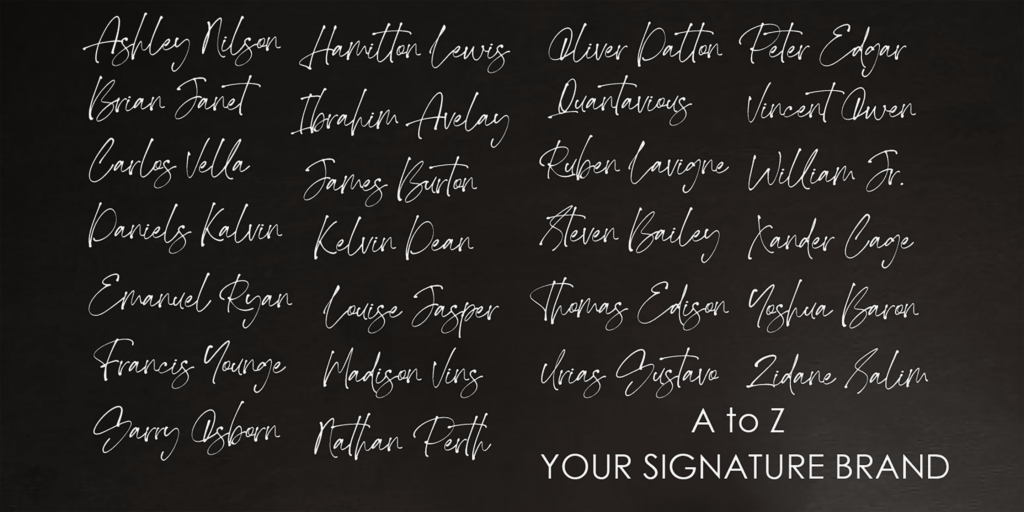 Ashley Nilson
Brian Janet
Carlos Vella
Daniels Kalvin
Emanuel Ryan
Francis Younge
Garry Osborn
Hamilton Lewis
Ibrahim Avelay
James Burton
Kelvin Dean
Louise Jasper
Madison Vins
Nathan Perth
Oliver Patton
Quantavious
Ruben Lavigne
Steven Bailey
Thomas Edison
Urias Gustavo
Peter Edgar
Vincent Owen
William Jr.
Xander Cage
Yoshua Baron
Zidane Salim
A to Z
YOUR SIGNATURE BRAND